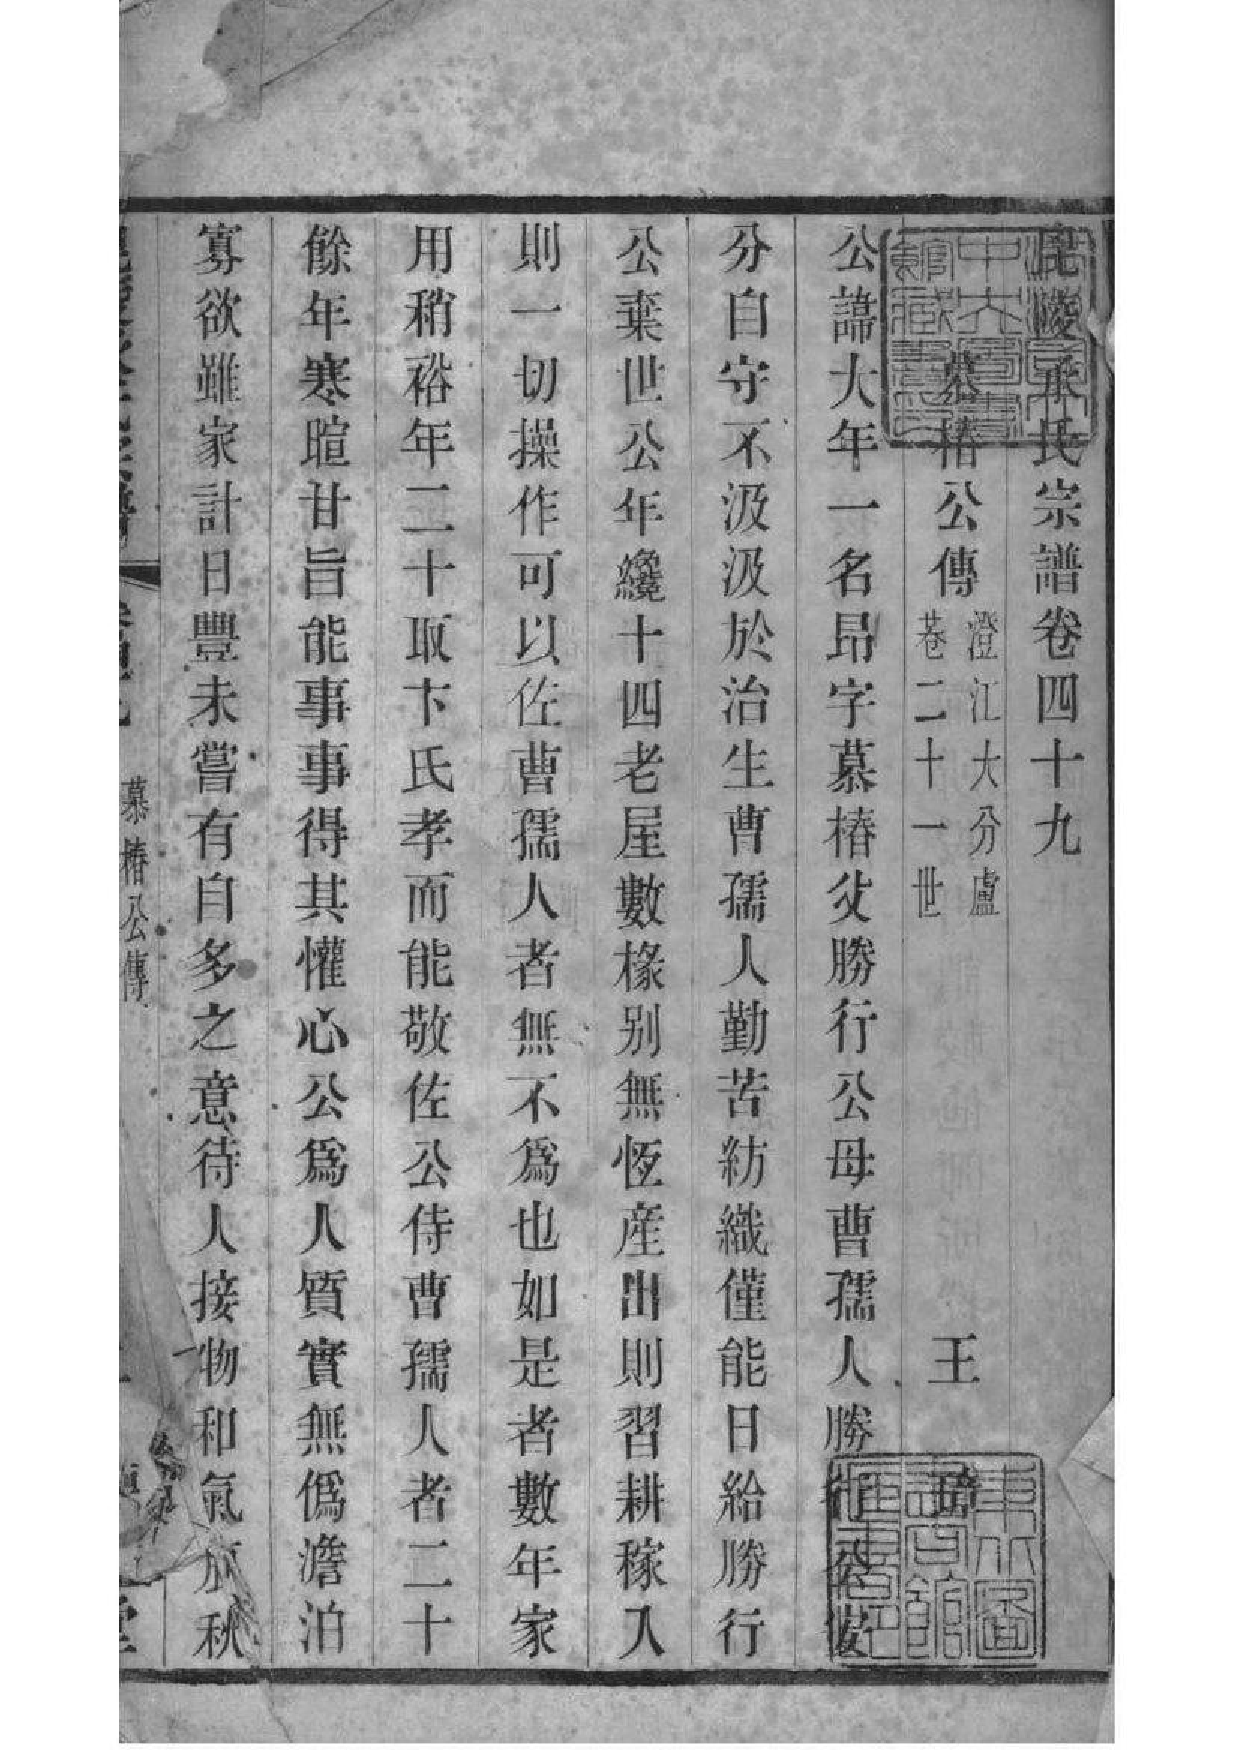 毘陵承氏宗譜卷四十九
慕椿公傳 澄江大分盧巷二十一世 王
公諱大年一名昂字慕椿父勝行公母曹孺人勝行公安
分自守不汲汲於治生曹孺人勤苦紡織僅能日給勝行
公棄世公年纔十四老屋數椽別無恆産出則習耕稼入
則一切操作可以佐曹孺人者無不爲也如是者數年家
用稍裕年二十取卞氏孝而能敬佐公侍曹孺人者二十
餘年寒暄甘旨能事事得其懽心公爲人質實無僞澹泊
寡欲雖家計日豐未嘗有自多之意待人接物和氣 秋
慕椿公傳